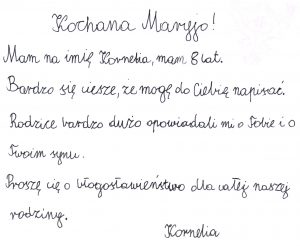 Kochana Maryjo!
Mam na imię Kornelia, mam 8 lat.
Bardzo się cieszę, że mogę do Ciebię napisać.
Rodzice bardzo dużo opowiadali mi o Tobie i o
Twoim synu.
Proszę cię o błogosławieństwo dla całej naszej
rodziny.
Kornelia